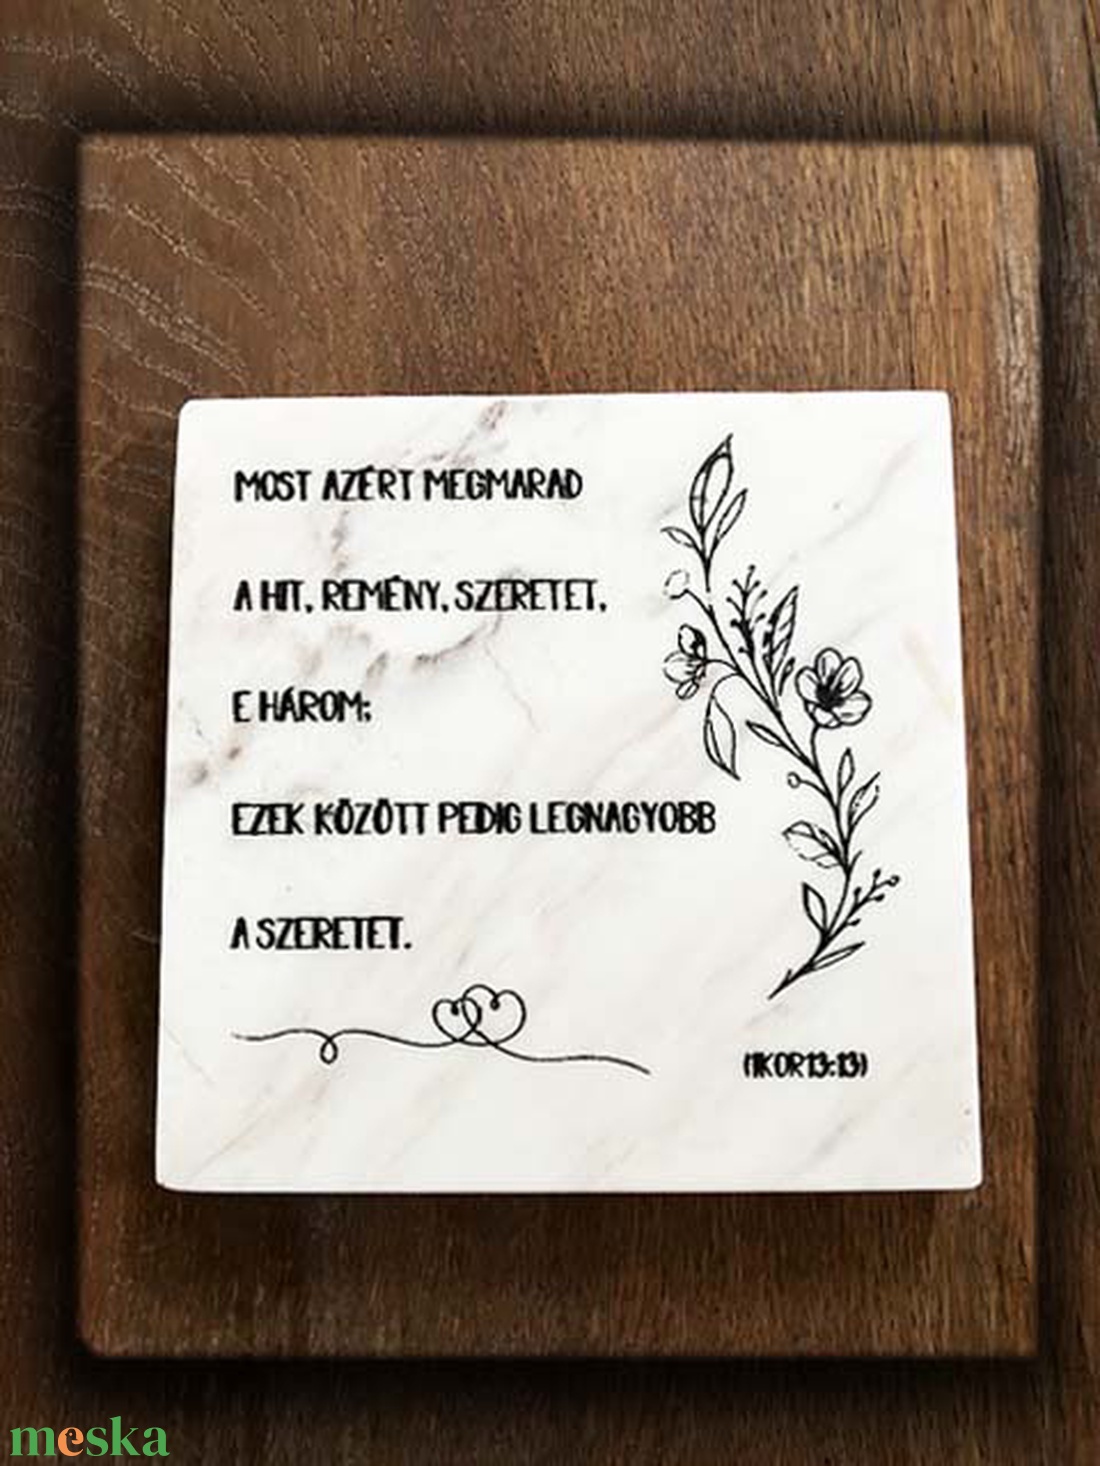 MOST AZÉRT MEGMARAD
A HIT, REMÉNY, SZERETET,
E HÁROM;
EZEK KÖZÖTT PEDIG LEGNAGYOBB
A SZERETET.
(1KOR13:13)
meska